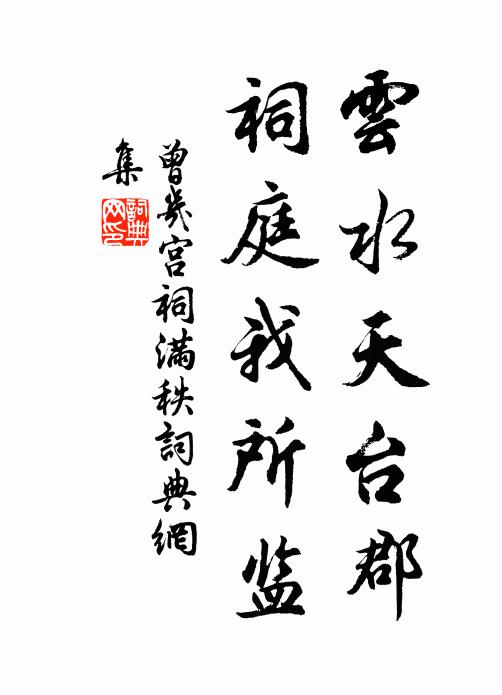 雲水天台郡
祠庭我所监
曾幾宫祠满秩詞典網
集
詞典網印